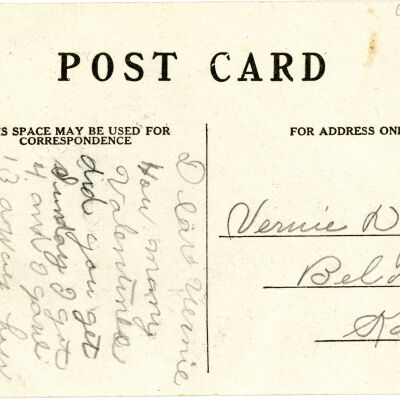 POST CARD
S SPACE MAY BE USED FOR
CORRESPONDENCE
FOR ADDRESS ONL
Dear Vernie
How many
Valentines
did you get
Sunday I got
4 and I gave
13 away
Vernie
Bel
Ka